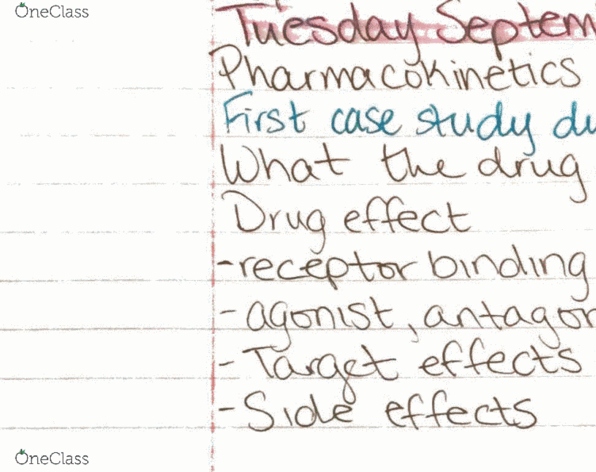 OneClass
Tuesday Septem
Pharmacokinetics
First case study du
What the drug
Drug effect
-receptor binding
- agonist, antagon
- Target effects
- Side effects
OneClass